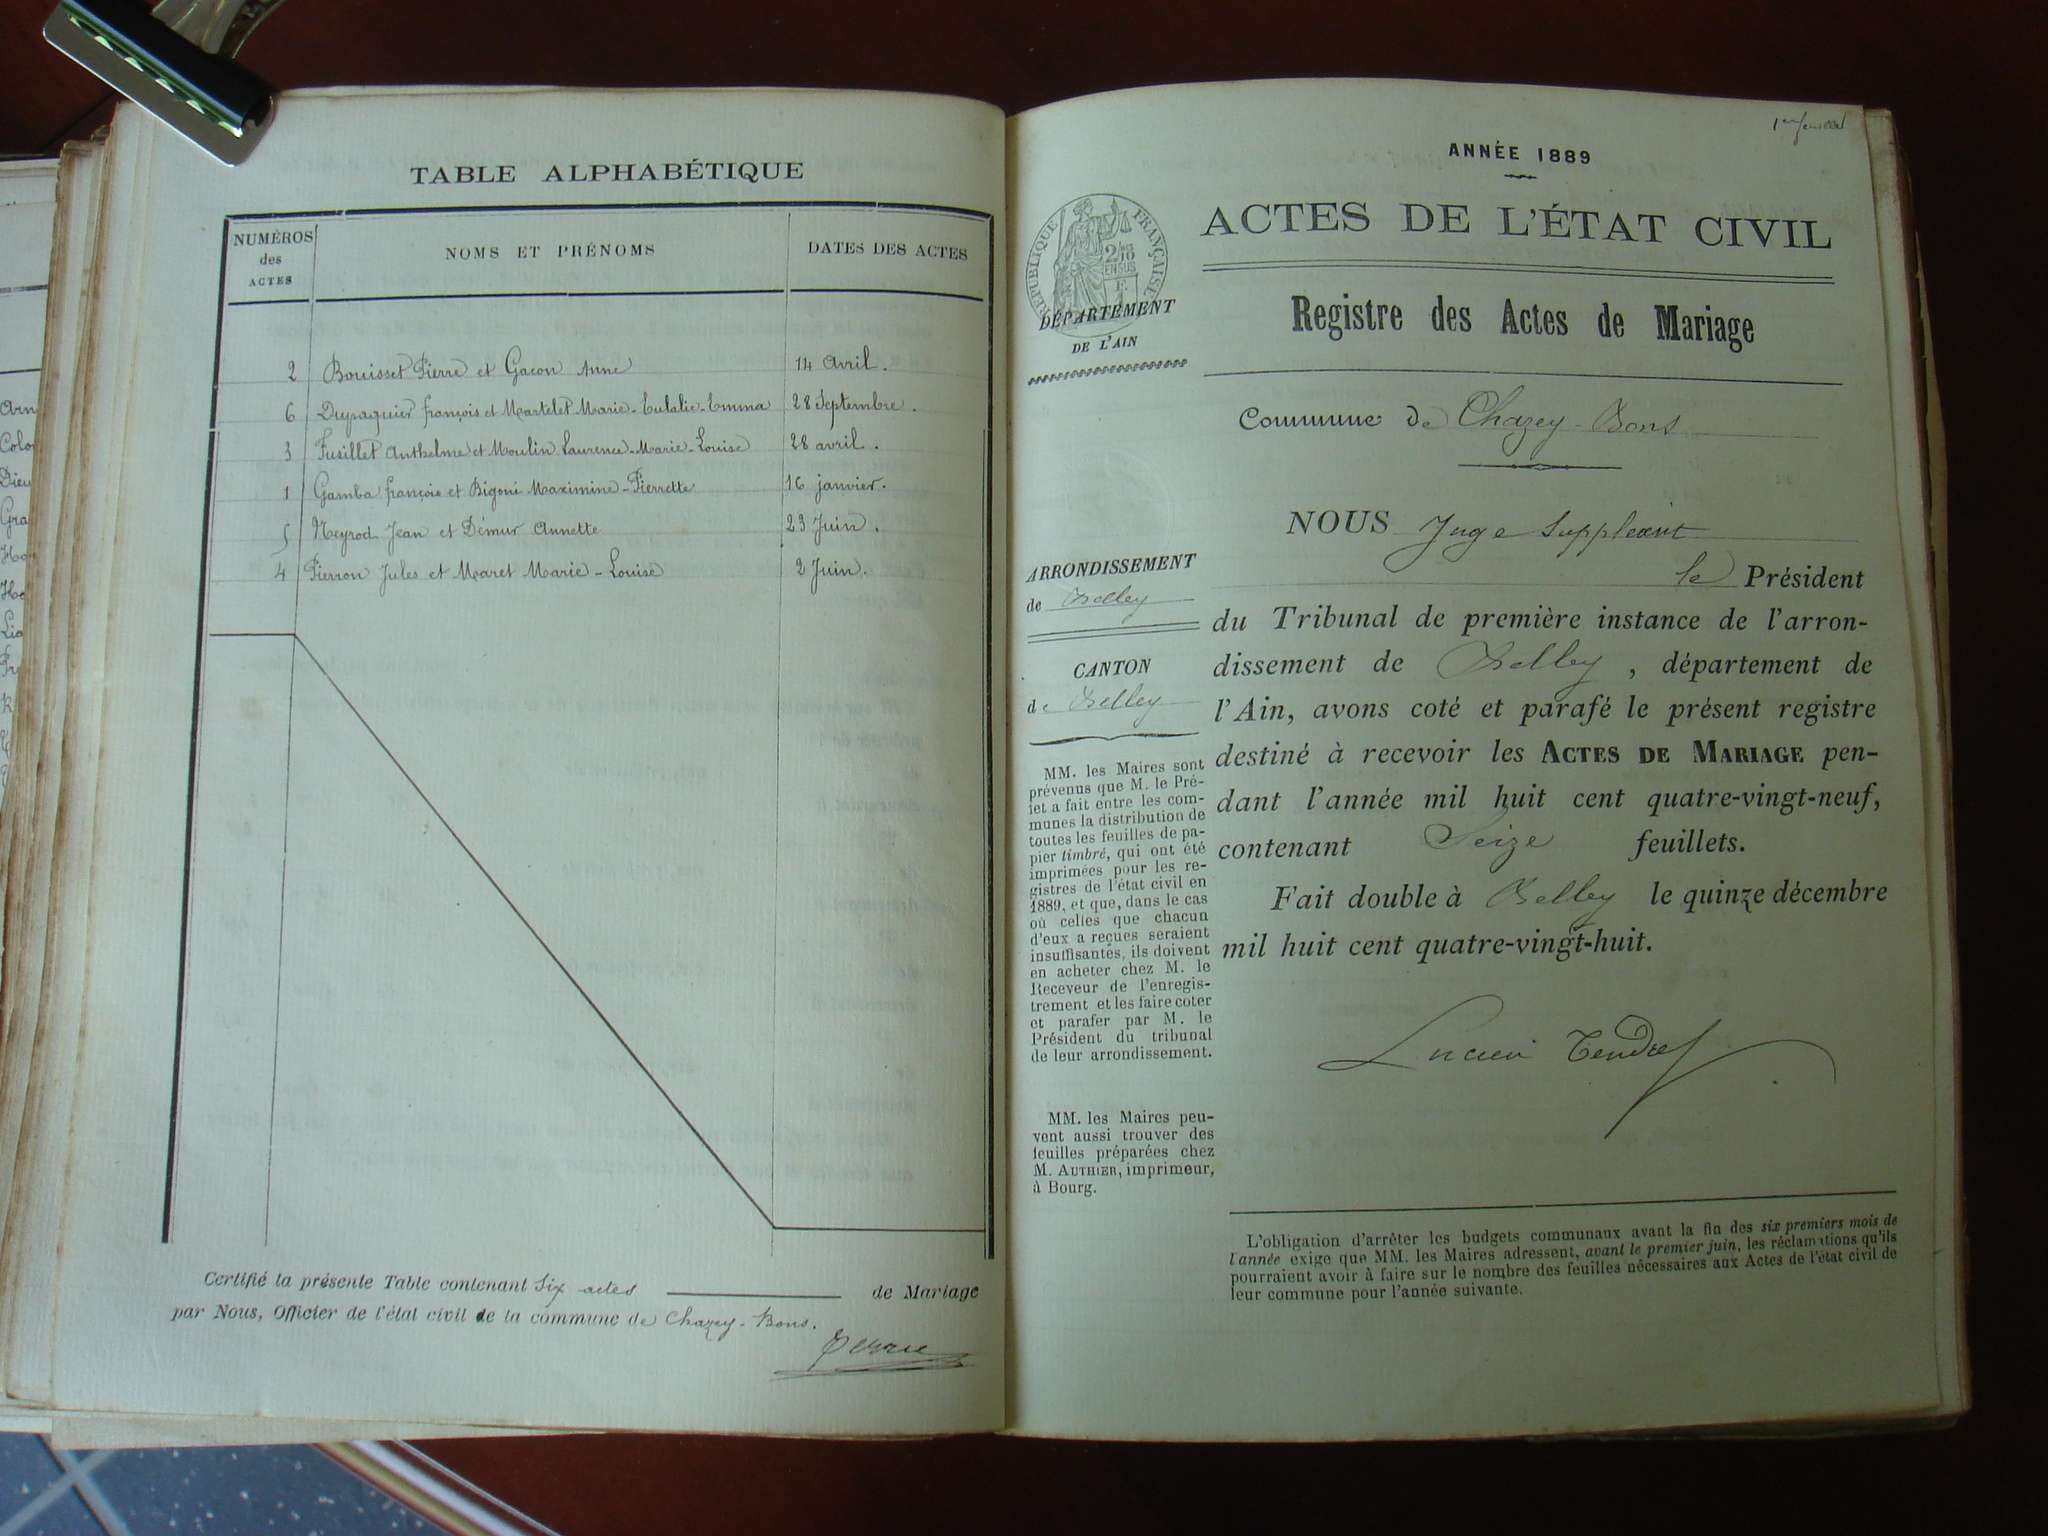 TABLE ALPHABÉTIQUE
NUMÉROS des ACTES
NOMS ET PRÉNOMS
DATES DES ACTES
2 Bouisset Pierre et Gacon Anne 14 Avril.
6 Dupraquier françois et Martelet Marie-Eulalie-Emma 28 Septembre.
3 Fusillet Anthelme et Moulin Laurence-Marie-Louise 28 avril.
1 Gamba françois et Bigoni Maximine-Pierrette 16 janvier.
5 Neyrod Jean et Démur Annette 23 Juin.
4 Pierron Jules et Maret Marie-Louise 2 Juin.
Certifié la présente Table contenant Six actes de Mariage
par Nous, Officier de l'état civil de la commune de Chazey-Bons.
1er feuillet
ANNÉE 1889
RÉPUBLIQUE FRANÇAISE
2/10 EN SUS
ACTES DE L'ÉTAT CIVIL
DÉPARTEMENT
DE L'AIN
Registre des Actes de Mariage
Commune de Chazey-Bons
NOUS Juge Suppléant
le Président
du Tribunal de première instance de l'arron-
dissement de Belley, département de
l'Ain, avons coté et parafé le présent registre
destiné à recevoir les ACTES DE MARIAGE pen-
dant l'année mil huit cent quatre-vingt-neuf,
contenant Seize feuillets.
Fait double à Belley le quinze décembre
mil huit cent quatre-vingt-huit.
Lucien Tendret
ARRONDISSEMENT
de Belley
CANTON
de Belley
MM. les Maires sont
prévenus que M. le Pré-
fet a fait entre les com-
munes la distribution de
toutes les feuilles de pa-
pier timbré, qui ont été
imprimées pour les re-
gistres de l'état civil en
1889, et que, dans le cas
où celles que chacun
d'eux a reçues seraient
insuffisantes, ils doivent
en acheter chez M. le
Receveur de l'enregis-
trement et les faire coter
et parafer par M. le
Président du tribunal
de leur arrondissement.
MM. les Maires peu-
vent aussi trouver des
feuilles préparées chez
M. AUTHIER, imprimeur,
à Bourg.
L'obligation d'arrêter les budgets communaux avant la fin des six premiers mois de
l'année exige que MM. les Maires adressent, avant le premier juin, les réclamations qu'ils
pourraient avoir à faire sur le nombre des feuilles nécessaires aux Actes de l'état civil de
leur commune pour l'année suivante.